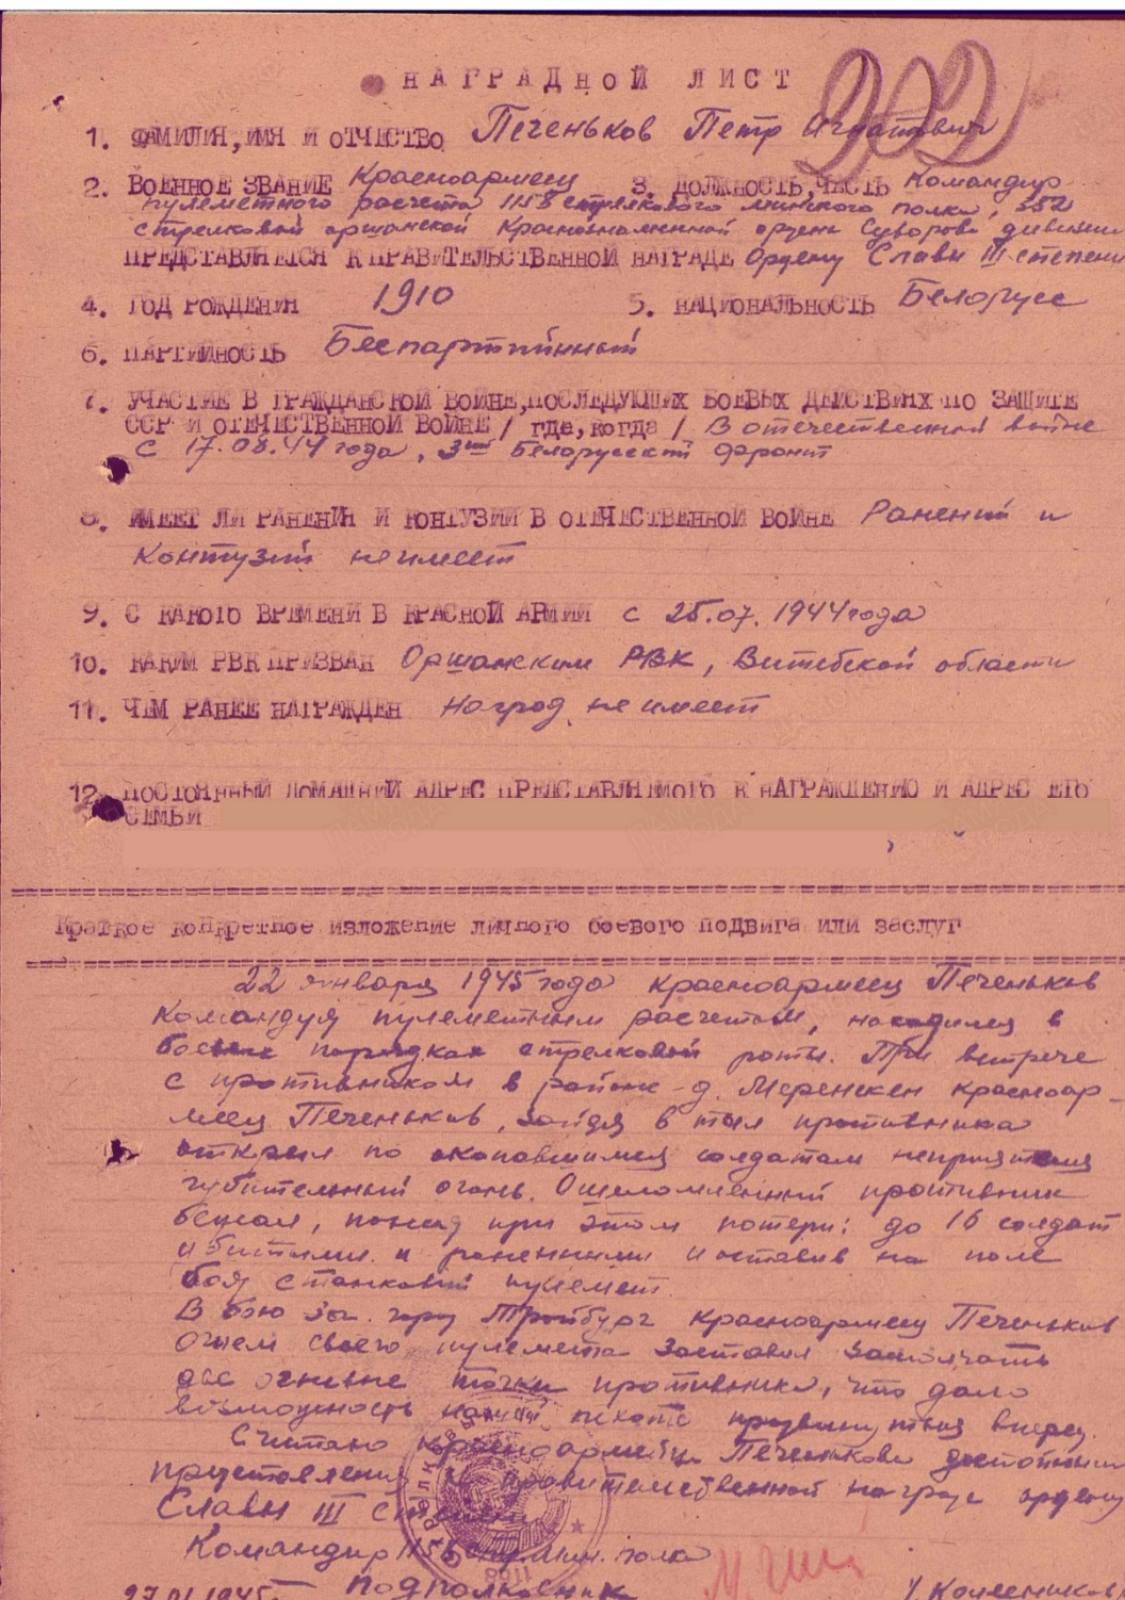 НАГРАДНОЙ ЛИСТ
202
1. ФАМИЛИЯ, ИМЯ И ОТЧЕСТВО Печеньков Петр Игнатович
2. ВОЕННОЕ ЗВАНИЕ Красноармеец 3. ДОЛЖНОСТЬ, ЧАСТЬ Командир
пулеметного расчета 1158 стрелкового минского полка, 352
стрелковой оршанской Краснознаменной ордена Суворова дивизии
ПРЕДСТАВЛЯЕТСЯ К ПРАВИТЕЛЬСТВЕННОЙ НАГРАДЕ Ордену Славы III степени
4. ГОД РОЖДЕНИЯ 1910 5. НАЦИОНАЛЬНОСТЬ Белорусс
6. ПАРТИЙНОСТЬ Беспартийный
7. УЧАСТИЕ В ГРАЖДАНСКОЙ ВОЙНЕ, ПОСЛЕДУЮЩИХ БОЕВЫХ ДЕЙСТВИЯХ ПО ЗАЩИТЕ
СССР И ОТЕЧЕСТВЕННОЙ ВОЙНЕ / где, когда / В отечественной войне
с 17.08.44 года, 3ий Белорусский фронт
8. ИМЕЕТ ЛИ РАНЕНИЯ И КОНТУЗИИ В ОТЕЧЕСТВЕННОЙ ВОЙНЕ Ранений и
Контузий не имеет
9. С КАКОГО ВРЕМЕНИ В КРАСНОЙ АРМИИ с 25.07.1944 года
10. КАКИМ РВК ПРИЗВАН Оршанским РВК, Витебской области
11. ЧЕМ РАНЕЕ НАГРАЖДЕН Наград не имеет
12. ПОСТОЯННЫЙ ДОМАШНИЙ АДРЕС ПРЕДСТАВЛЯЕМОГО К НАГРАЖДЕНИЮ И АДРЕС ЕГО
СЕМЬИ
Краткое конкретное изложение личного боевого подвига или заслуг
22 января 1945 года красноармеец Печеньков
командуя пулеметным расчетом, находился в
боевых порядках стрелковой роты. При встрече
с противником в районе д. Меренскен красноар-
меец Печеньков, зайдя в тыл противника
открыл по окопавшимся солдатам неприятеля
губительный огонь. Ошеломленный противник
бежал, понеся при этом потери: до 16 солдат
убитыми и ранеными и оставив на поле
боя станковый пулемет.
В бою за гор. Тройбург красноармеец Печеньков
огнем своего пулемета заставил замолчать
две огневые точки противника, что дало
возможность нашей пехоте продвинуться вперед.
Считаю красноармейца Печенькова достойным
представления к правительственной награде ордену
Славы III степени
Командир 1158 стр. мин. полка
27.01.1945 подполковник